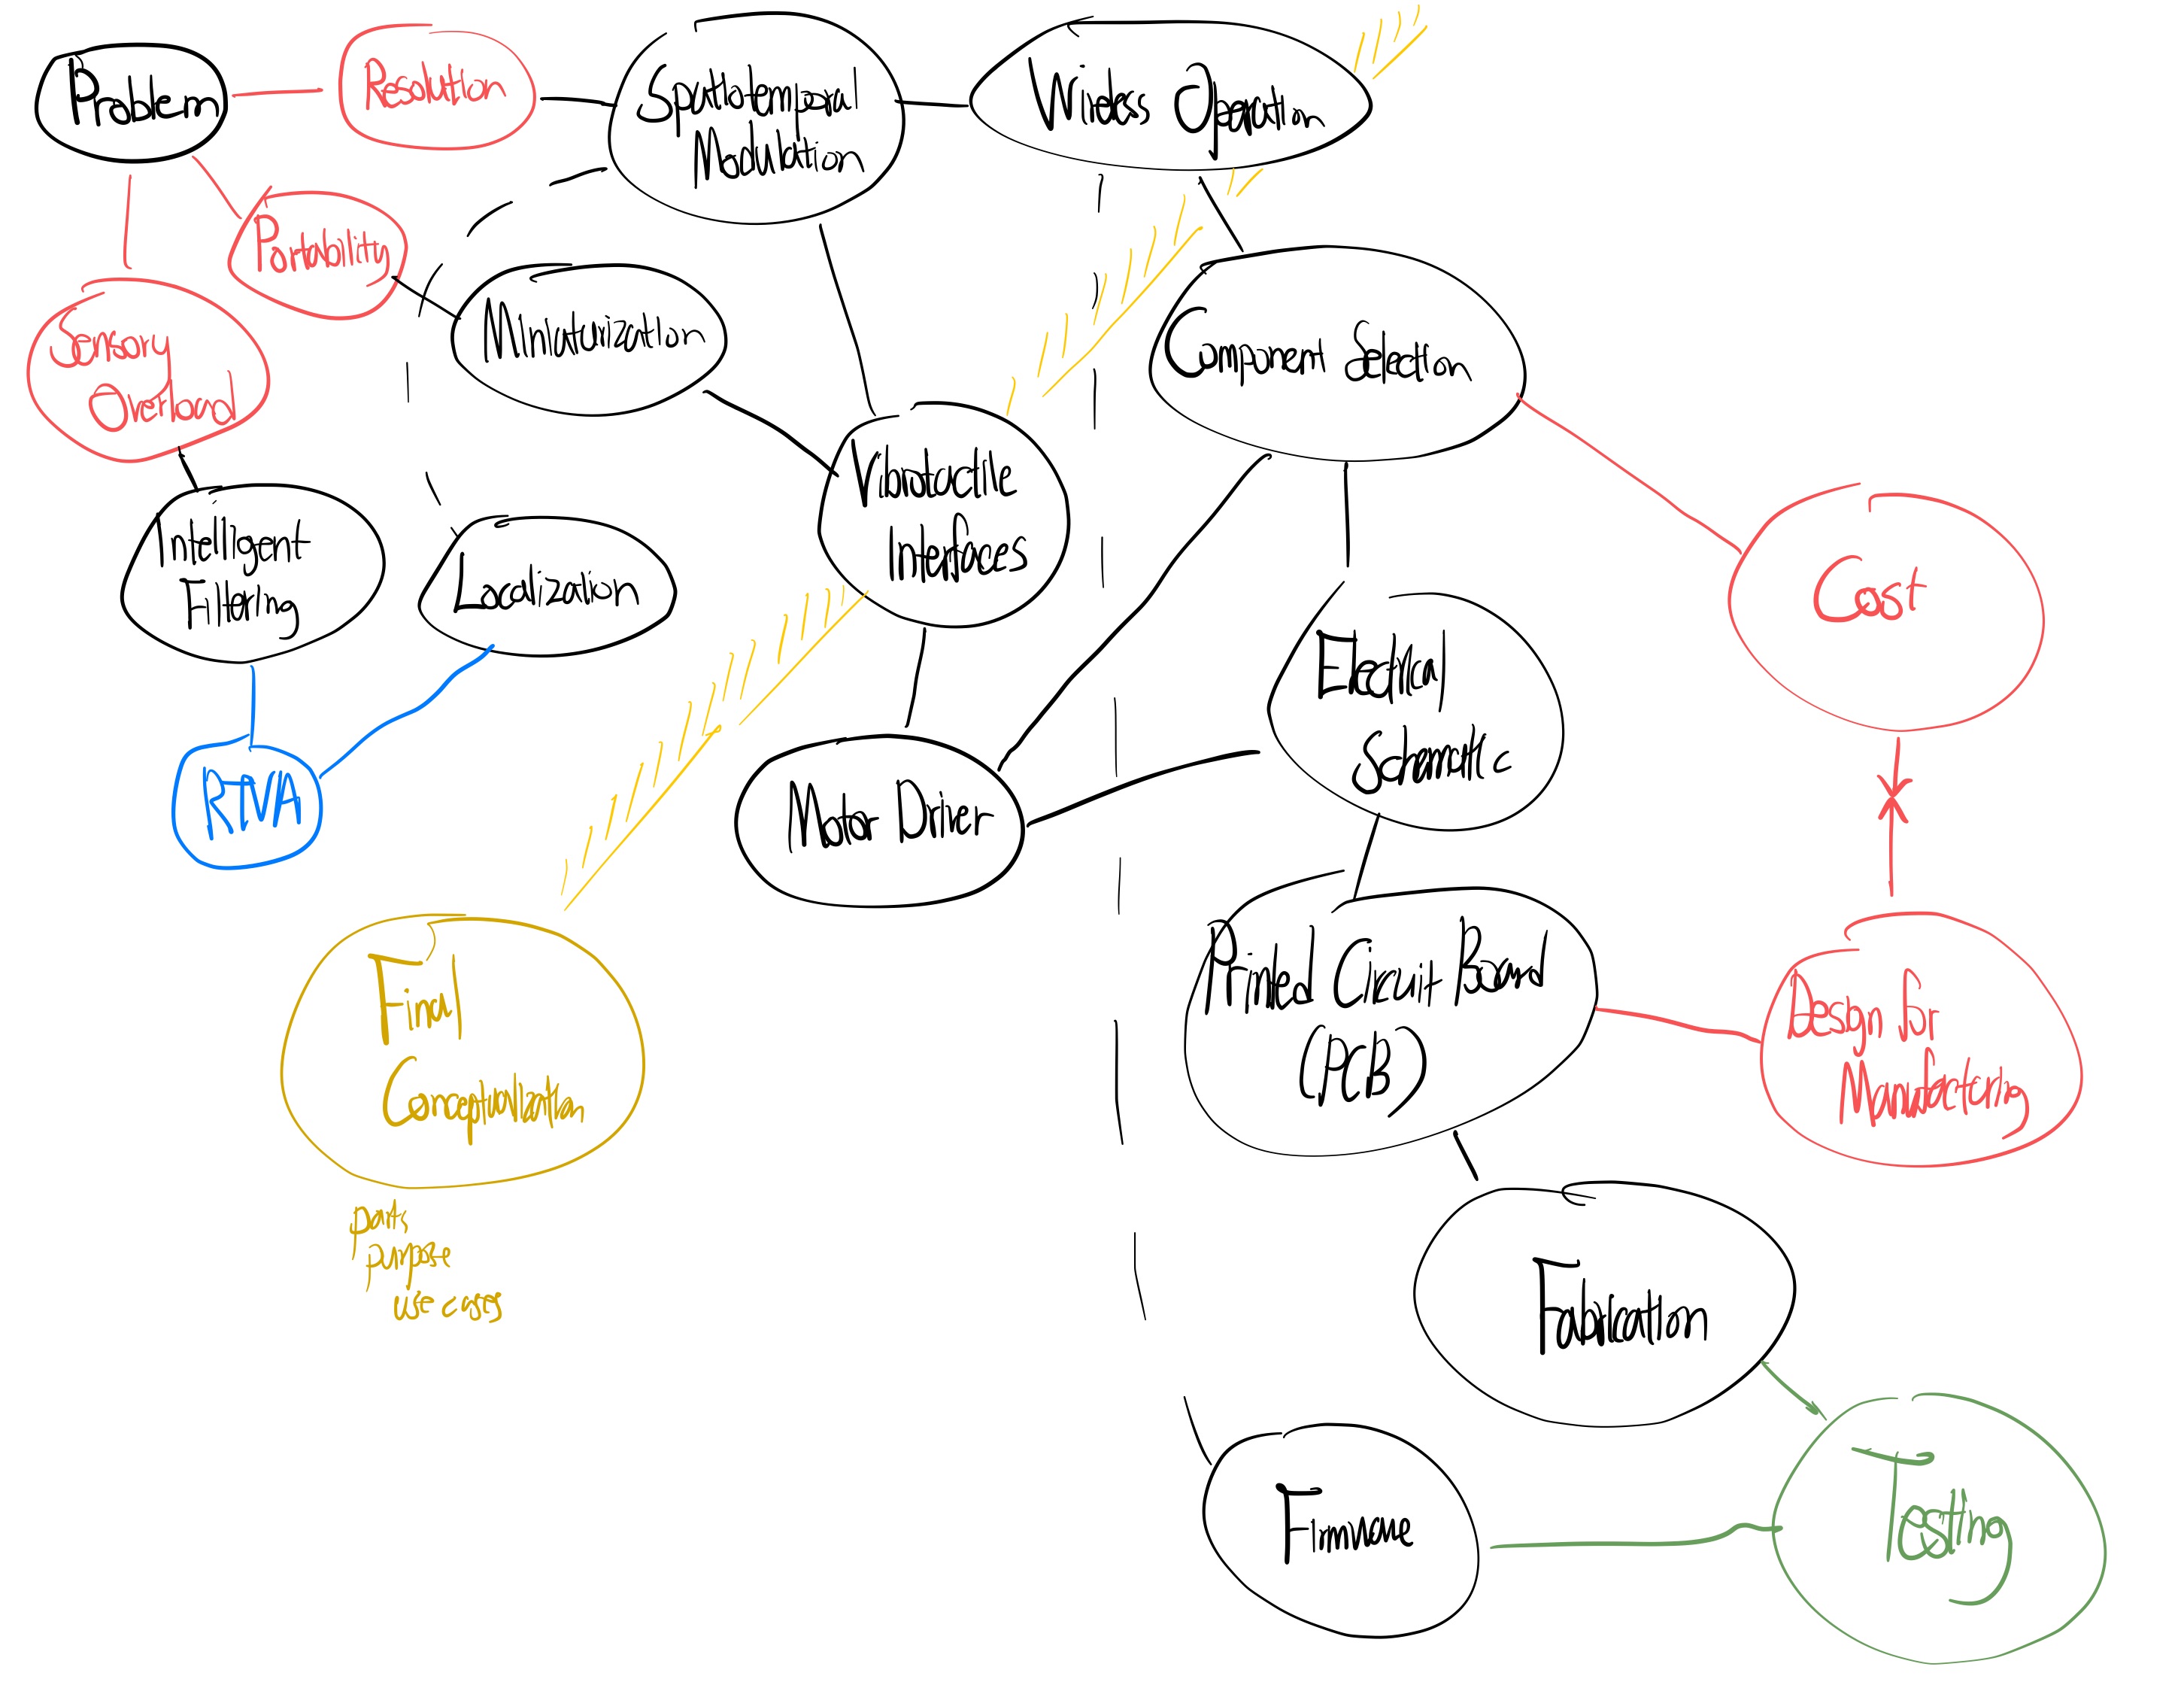 Problem
Resolution
Spatiotemporal
Modulation
Wireless Operation
Portability
Sensory
Overload
Miniaturization
Component Selection
Vibrotactile
Interfaces
Intelligent
Filtering
Localization
Cost
Electrical
Schematic
RTVA
Motor Driver
Printed Circuit Board
(PCB)
Design for
Manufacturing
Final
Conceptualization
parts
purpose
use cases
Fabrication
Firmware
Testing